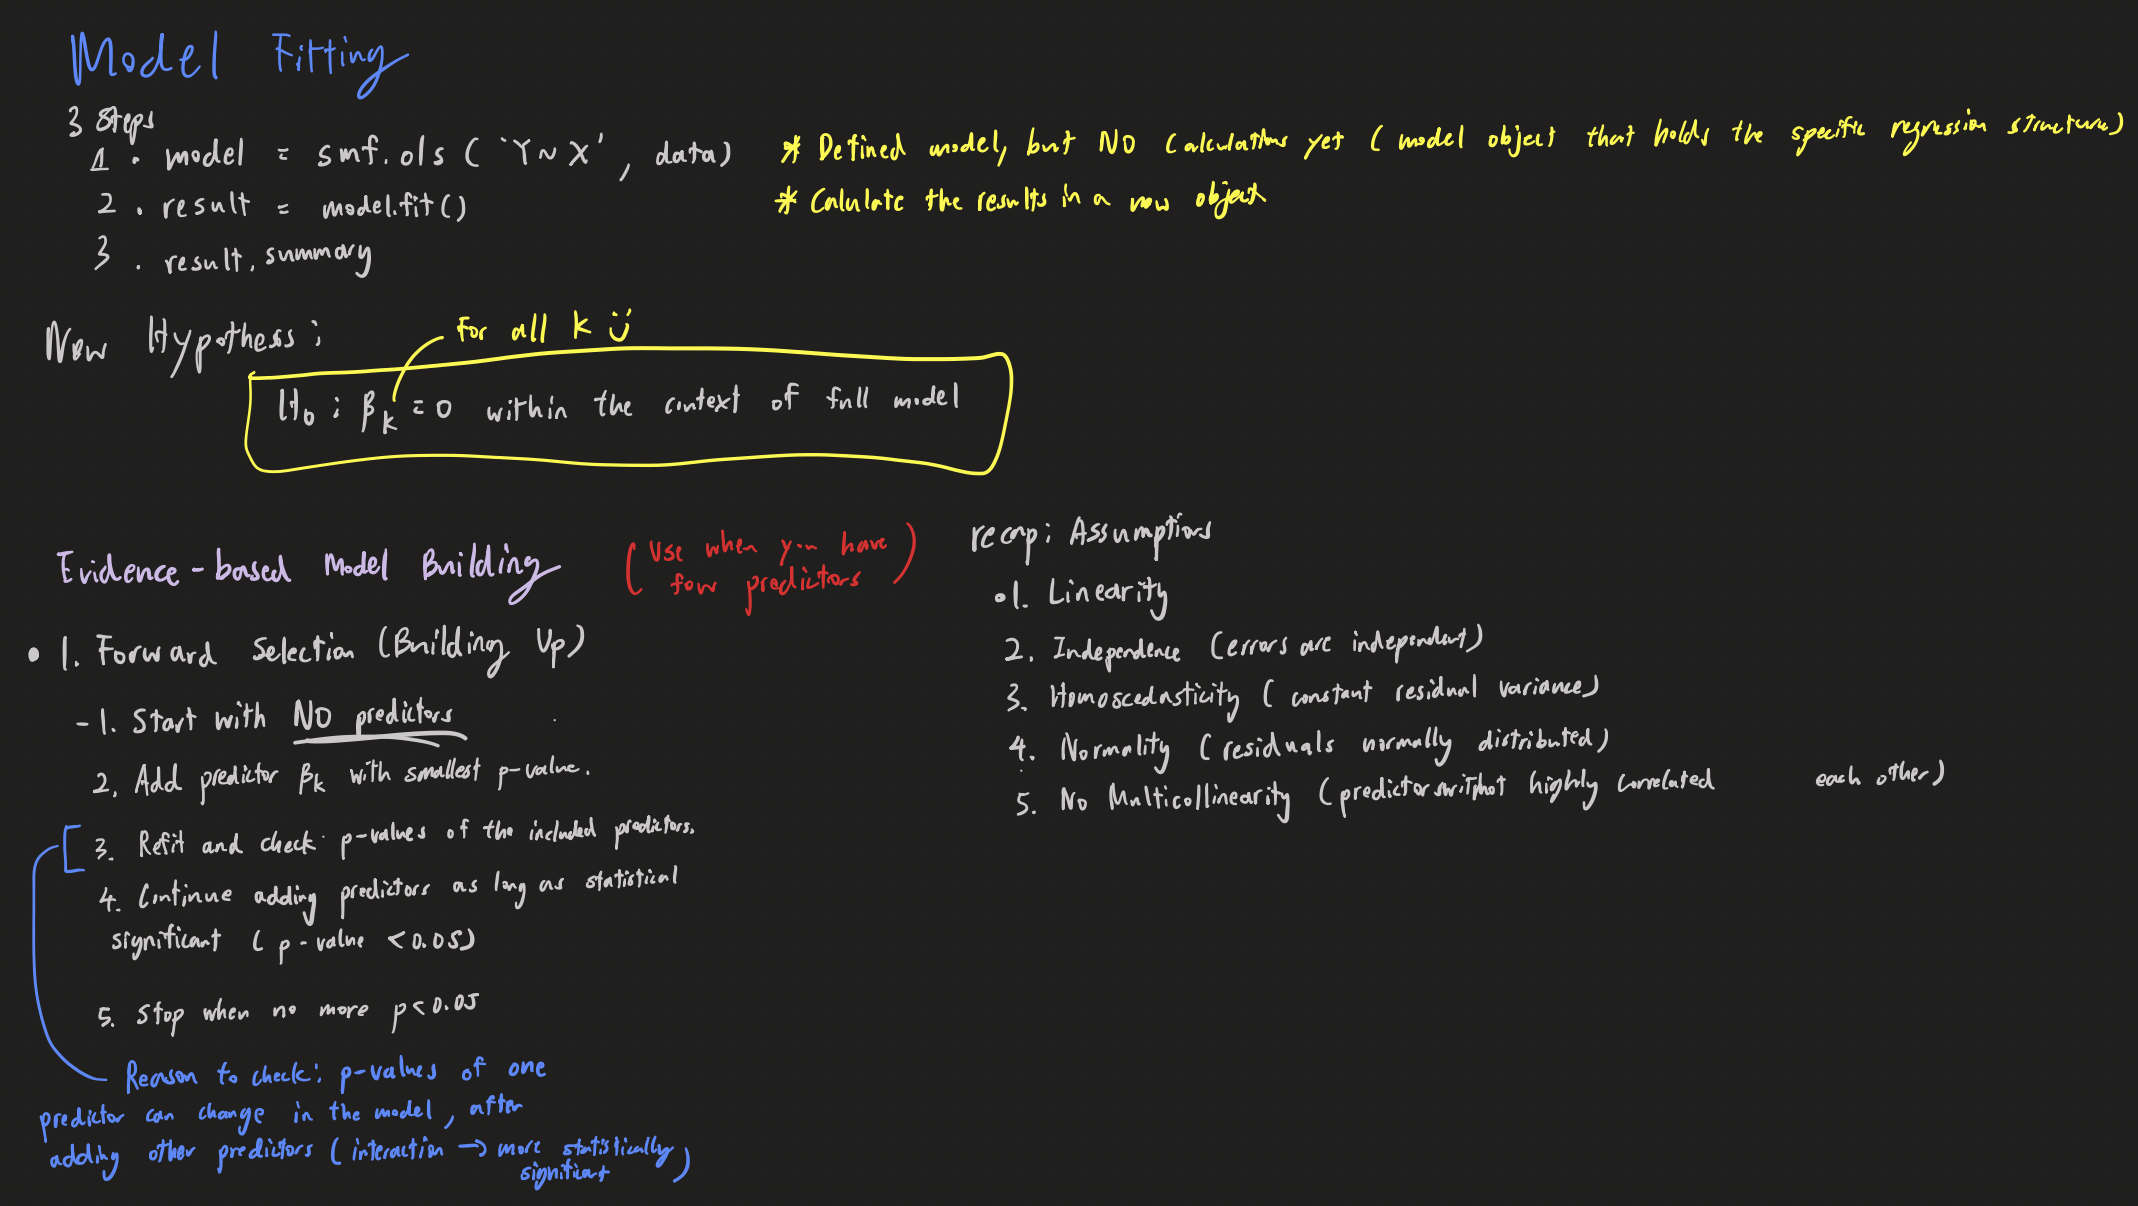 Model Fitting
3 Steps
1. model = smf.ols ( 'Y~X' , data) * Defined model, but NO calculations yet ( model object that holds the specific regression structure)
2. result = model.fit() * Calulate the results in a new object
3. result. summary
New Hypothesis:
For all k
H₀ : βₖ = 0 within the context of full model
Evidence-based Model Building
(Use when you have
few predictors)
• 1. Forward Selection (Building Up)
- 1. Start with NO predictors
2. Add predictor βₖ with smallest p-value.
3. Refit and check p-values of the included predictors.
4. Continue adding predictors as long as statistical
significant ( p-value < 0.05)
5. Stop when no more p < 0.05
Reason to check: p-values of one
predictor can change in the model, after
adding other predictors ( interaction → more statistically
significant )
recap: Assumptions
• 1. Linearity
2. Independence (errors are independent)
3. Homoscedasticity ( constant residual variance)
4. Normality (residuals normally distributed)
5. No Multicollinearity (predictors not highly correlated each other)